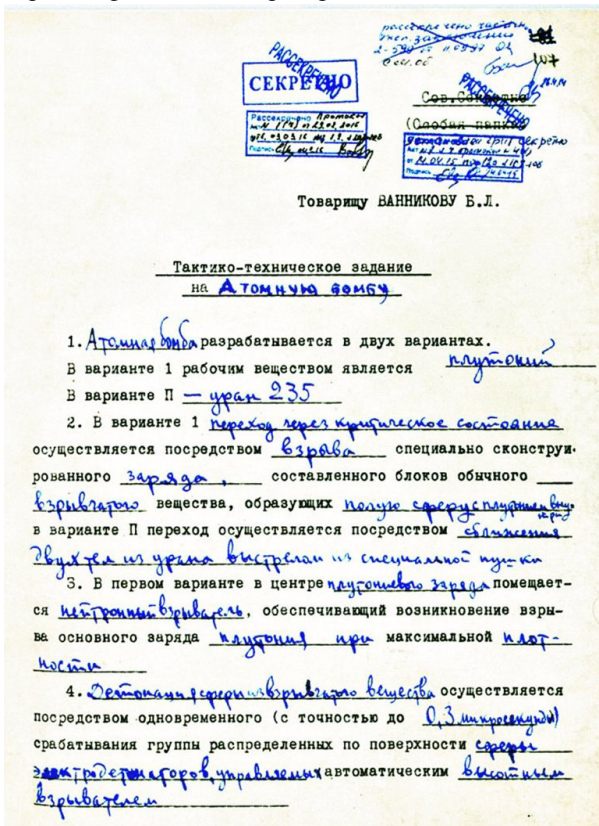 рассекречено частич.
РАССЕКРЕЧЕНО
СЕКРЕТНО
107
Сов.Секретно
РАССЕКРЕЧЕНО
(Особая папка)
Рассекречено Протокол
установлен гриф секретно
Подпись
Подпись
Товарищу ВАННИКОВУ Б.Л.
Тактико-техническое задание
на Атомную бомбу
1. Атомная бомба разрабатывается в двух вариантах.
В варианте 1 рабочим веществом является плутоний
В варианте П — уран 235
2. В варианте 1 переход через критическое состояние
осуществляется посредством взрыва специально сконструи-
рованного заряда, составленного блоков обычного
взрывчатого вещества, образующих полую сферу с плутонием внутри
в варианте П переход осуществляется посредством сближения
двух тел из урана выстрелом из специальной пушки
3. В первом варианте в центре плутониевого заряда помещает-
ся нейтронный взрыватель, обеспечивающий возникновение взры-
ва основного заряда плутония при максимальной плот-
ности
4. Детонация сферы из взрывчатого вещества осуществляется
посредством одновременного (с точностью до 0,3 микросекунды)
срабатывания группы распределенных по поверхности сферы
электродетонаторов, управляемых автоматическим высотным
взрывателем